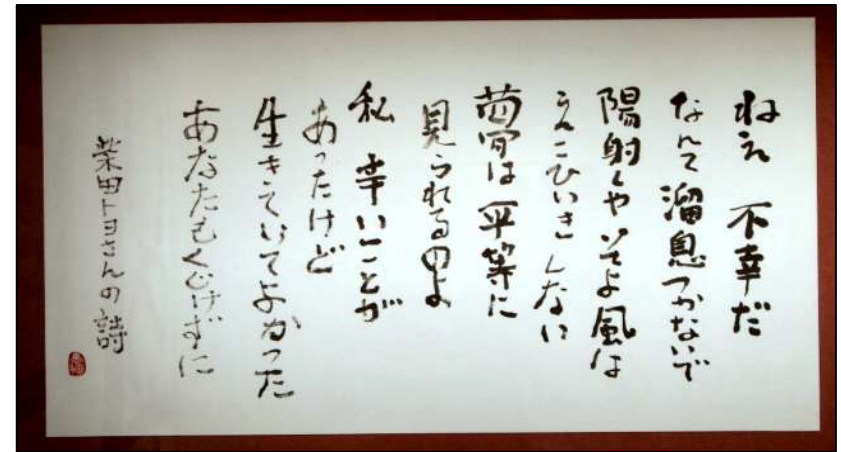 ねえ 不幸だ
なんて溜息つかないで
陽射しやそよ風は
えこひいきしない
夢は平等に
見られるのよ
私 辛いことが
あったけど
生きていてよかった
あなたもくじけずに
柴田トヨさんの詩